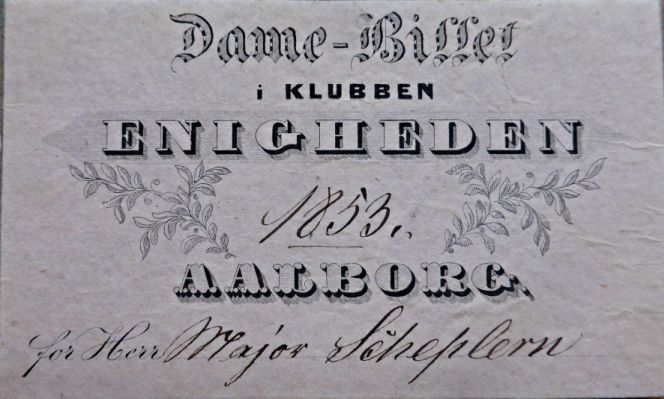 Dame-Billet
i KLUBBEN
ENIGHEDEN
1853.
AALBORG.
for Herr Major Scheplern